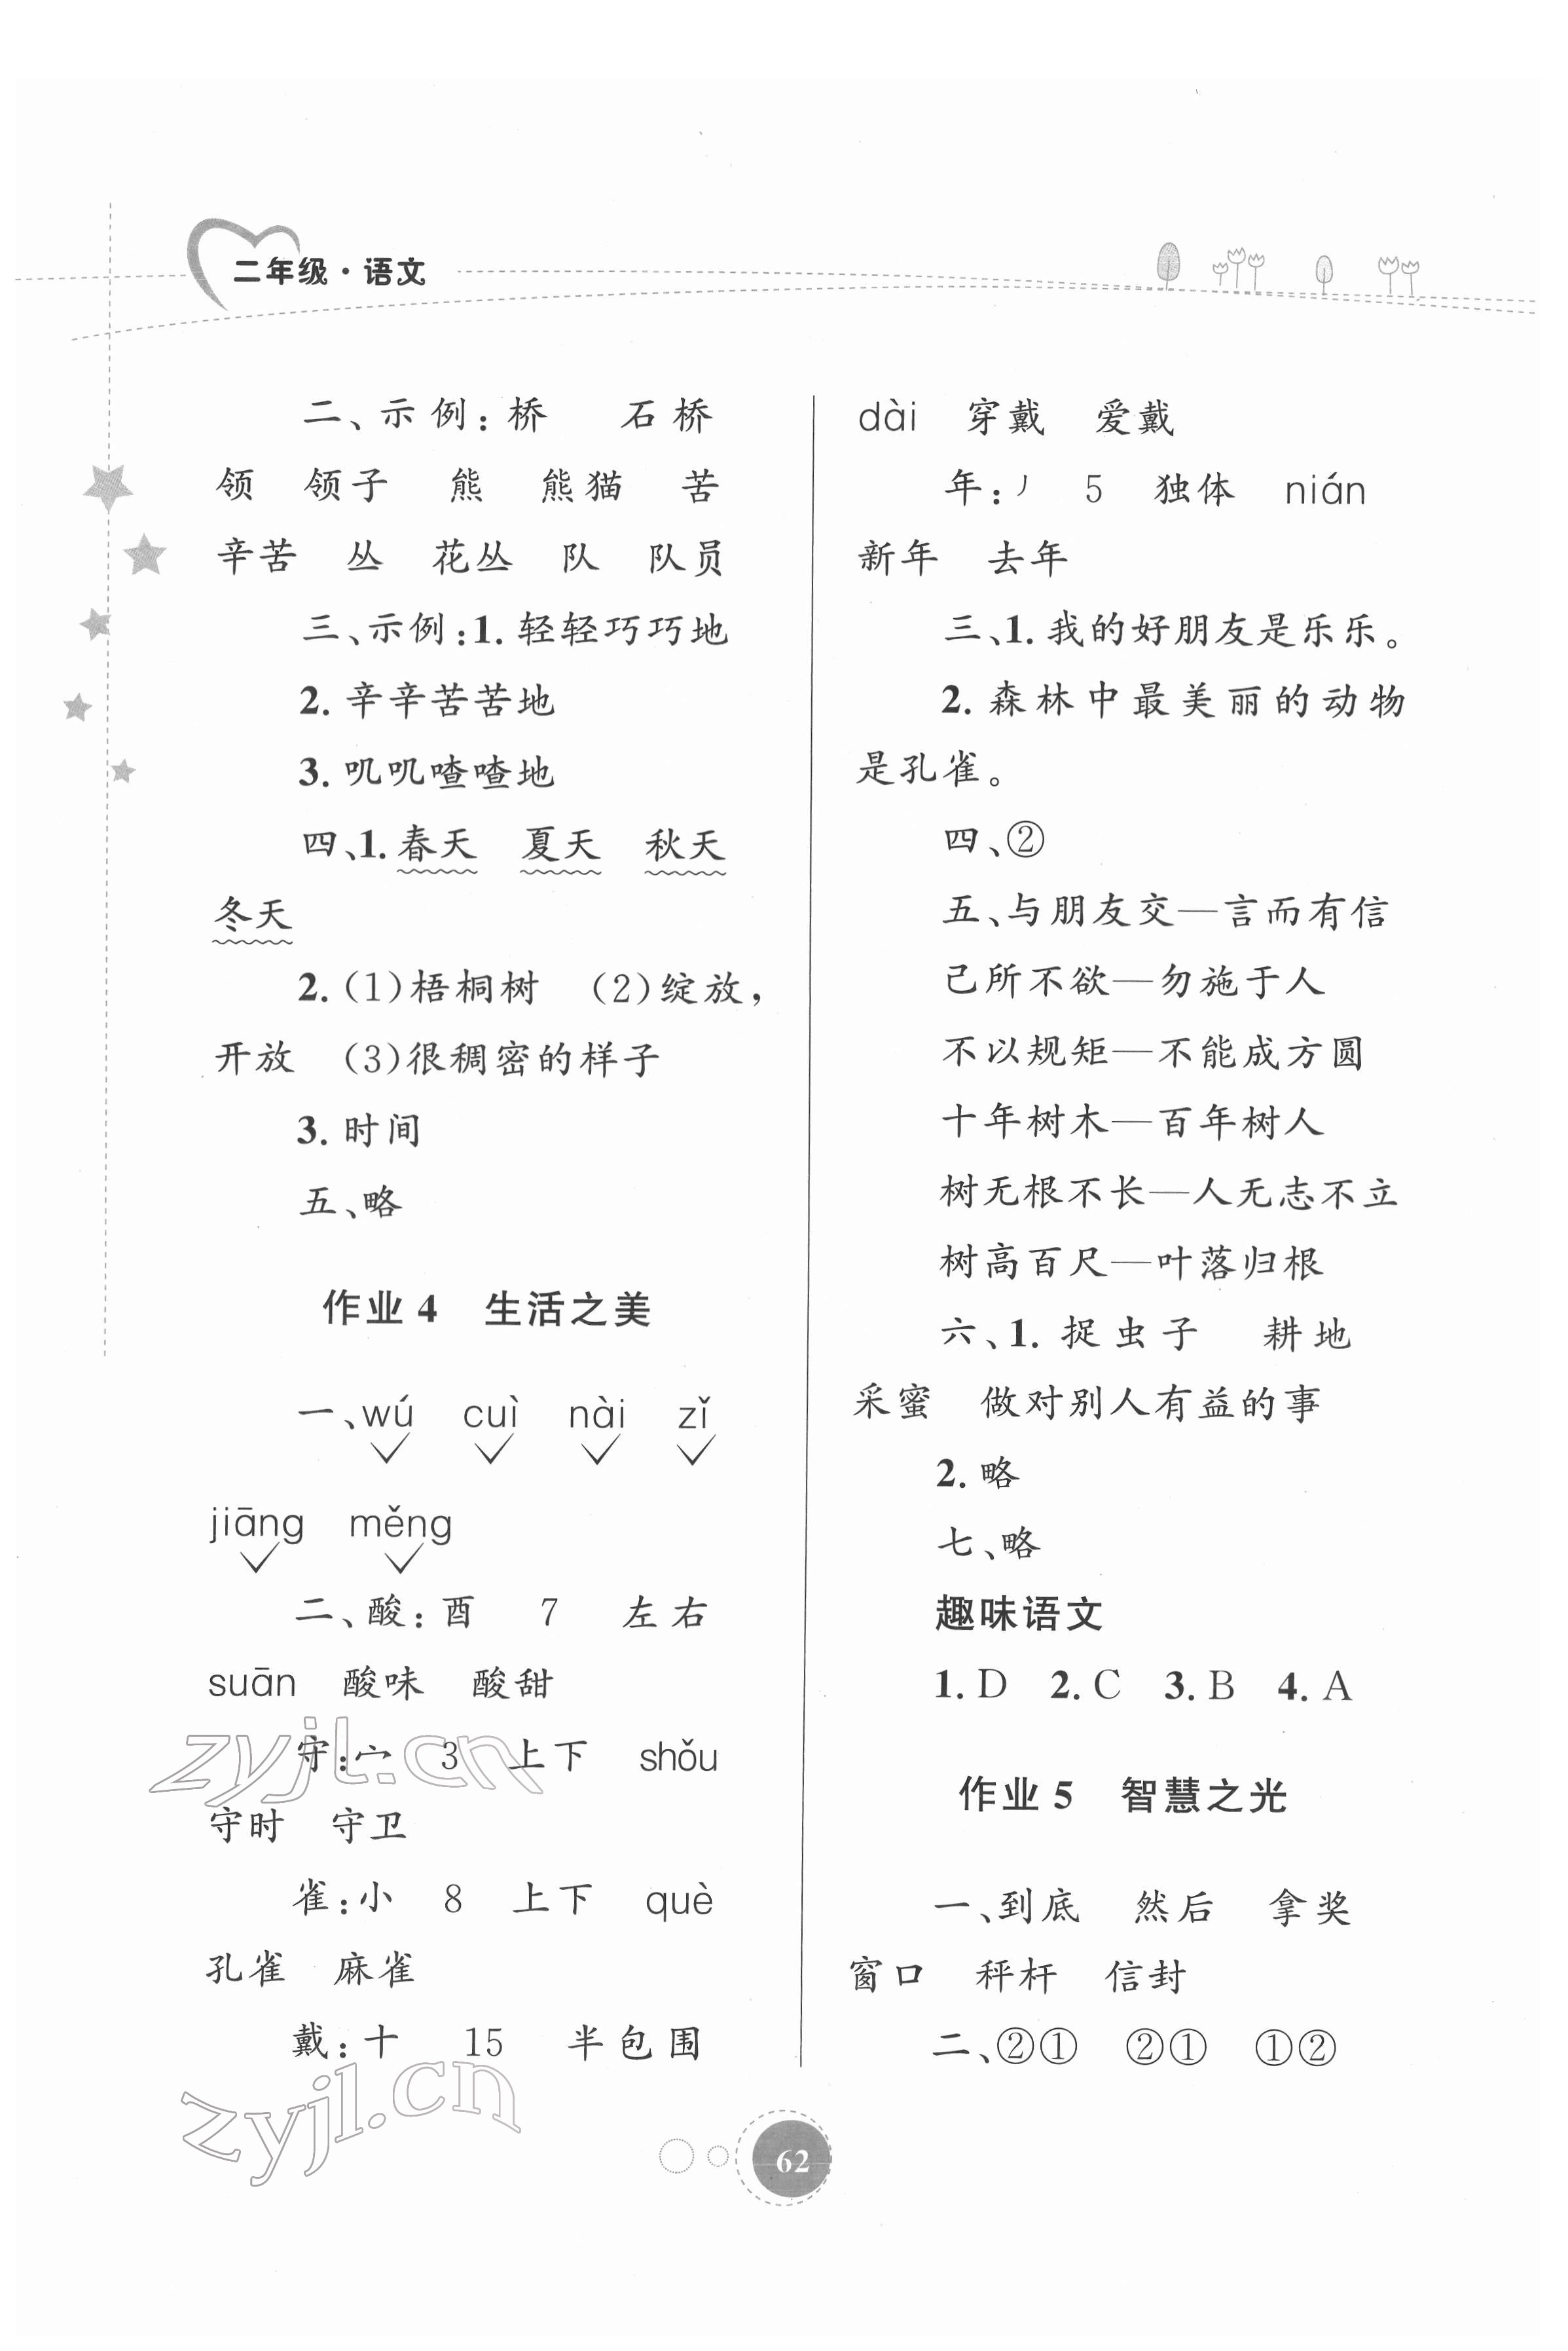 二年级·语文
二、示例：桥 石桥
领 领子 熊 熊猫 苦
辛苦 丛 花丛 队 队员
三、示例：1. 轻轻巧巧地
2. 辛辛苦苦地
3. 叽叽喳喳地
四、1. 春天 夏天 秋天
冬天
2. (1)梧桐树 (2)绽放，
开放 (3)很稠密的样子
3. 时间
五、略
作业 4 生活之美
一、wú cuì nài zǐ
jiāng měng
二、酸：酉 7 左右
suān 酸味 酸甜
守：宀 3 上下 shǒu
守时 守卫
雀：小 8 上下 què
孔雀 麻雀
戴：十 15 半包围
dài 穿戴 爱戴
年：丿 5 独体 nián
新年 去年
三、1. 我的好朋友是乐乐。
2. 森林中最美丽的动物
是孔雀。
四、②
五、与朋友交—言而有信
己所不欲—勿施于人
不以规矩—不能成方圆
十年树木—百年树人
树无根不长—人无志不立
树高百尺—叶落归根
六、1. 捉虫子 耕地
采蜜 做对别人有益的事
2. 略
七、略
趣味语文
1. D 2. C 3. B 4. A
作业 5 智慧之光
一、到底 然后 拿奖
窗口 秤杆 信封
二、②① ②① ①②
zyjl.cn
zyjl.cn
62